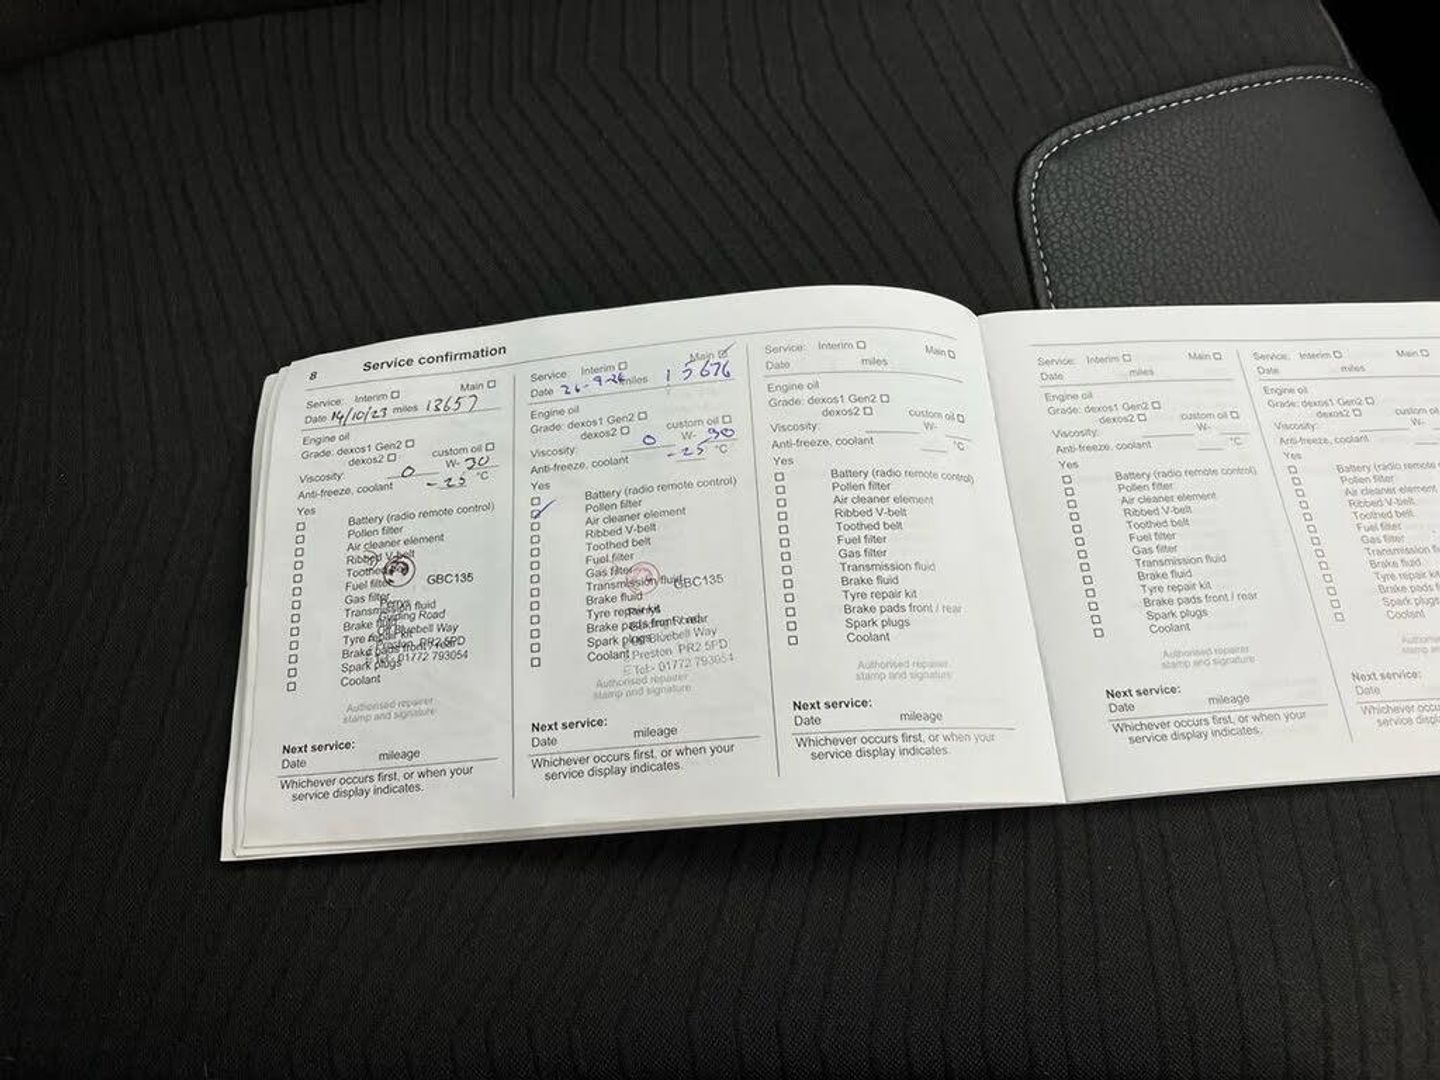 8 Service confirmation
Service: Interim Main
Date 14/10/23 miles 13657
Engine oil
Grade: dexos1 Gen2
dexos2 custom oil
Viscosity: 0 W- 30
Anti-freeze, coolant -25 °C
Yes
Battery (radio remote control)
Pollen filter
Air cleaner element
Ribbed V-belt
Toothed
Fuel filter
GBC135
Gas filter
Transmission fluid
Brake
Bluebell Way
Tyre repair kit
Preston PR2 5PD
Brake pads front / rear
Tel:- 01772 793054
Spark plugs
Coolant
Authorised repairer
stamp and signature
Next service:
Date mileage
Whichever occurs first, or when your
service display indicates.
Service: Interim Main
Date miles 15676
Engine oil
Grade: dexos1 Gen2
dexos2 custom oil
Viscosity: 0 W- 30
Anti-freeze, coolant -25 °C
Yes
Battery (radio remote control)
Pollen filter
Air cleaner element
Ribbed V-belt
Toothed belt
Fuel filter
Gas filter
Transmission fluid
GBC135
Brake fluid
Tyre repair kit
Brake pads front / rear
Spark plugs
Bluebell Way
Coolant
Preston PR2 5PD
Tel:- 01772 793054
Authorised repairer
stamp and signature
Next service:
Date mileage
Whichever occurs first, or when your
service display indicates.
Service: Interim Main
Date miles
Engine oil
Grade: dexos1 Gen2
dexos2 custom oil
Viscosity: W-
Anti-freeze, coolant °C
Yes
Battery (radio remote control)
Pollen filter
Air cleaner element
Ribbed V-belt
Toothed belt
Fuel filter
Gas filter
Transmission fluid
Brake fluid
Tyre repair kit
Brake pads front / rear
Spark plugs
Coolant
Authorised repairer
stamp and signature
Next service:
Date mileage
Whichever occurs first, or when your
service display indicates.
Service: Interim Main
Date miles
Engine oil
Grade: dexos1 Gen2
dexos2 custom oil
Viscosity: W-
Anti-freeze, coolant °C
Yes
Battery (radio remote control)
Pollen filter
Air cleaner element
Ribbed V-belt
Toothed belt
Fuel filter
Gas filter
Transmission fluid
Brake fluid
Tyre repair kit
Brake pads front / rear
Spark plugs
Coolant
Authorised repairer
stamp and signature
Next service:
Date mileage
Whichever occurs first, or when your
service display indicates.
Service: Interim Main
Date miles
Engine oil
Grade: dexos1 Gen2
dexos2 custom
Viscosity: W-
Anti-freeze, coolant
Yes
Battery (radio remote
Pollen filter
Air cleaner element
Ribbed V-belt
Toothed belt
Fuel filter
Gas filter
Transmission
Brake fluid
Tyre repair kit
Brake pads
Spark plugs
Coolant
Next service:
Date
Whichever
service